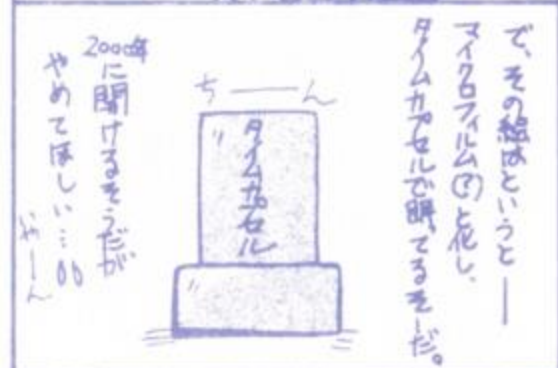 で、その絵はというと──
マイクロフィルム(?)と化し、
タイムカプセルで眠ってるそーだ。
ち──ん
タイムカプセル
2000年
に開けるそうだが
やめてほしい…
いやーん